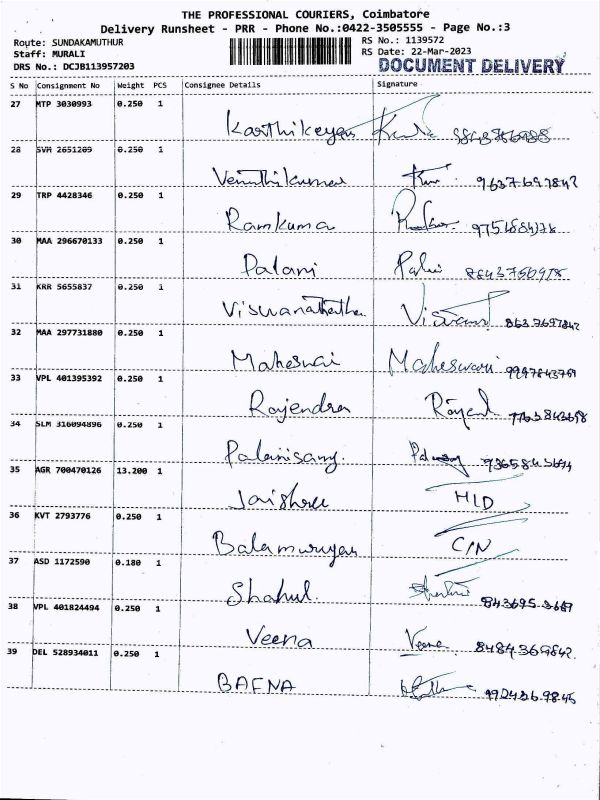 THE PROFESSIONAL COURIERS, Coimbatore
Delivery Runsheet - PRR - Phone No.:0422-3505555 - Page No.:3
Route: SUNDAKAMUTHUR RS No.: 1139572
Staff: MURALI RS Date: 22-Mar-2023
DRS No.: DCJB113957203 DOCUMENT DELIVERY
S No Consignment No Weight PCS Consignee Details Signature
27 MTP 3030993 0.250 1
Karthikeyan
28 SVM 2651209 0.250 1
9637697842
29 TRP 4428346 0.250 1
Ramkuma
30 MAA 296670133 0.250 1
Palani
31 KRR 5655837 0.250 1
8637697842
32 MAA 297731880 0.250 1
Maheswari Maheswari
33 VPL 401395392 0.250 1
Rajendra
34 SLM 316094896 0.250 1
Palanisamy
35 AGR 700470126 13.200 1
Jaishree HLD
36 KVT 2793776 0.250 1
Balamurugan C/N
37 ASD 1172590 0.180 1
Shahul.
38 VPL 401824494 0.250 1
Veena Veena 8484369842
39 DEL 528934011 0.250 1
BAFNA